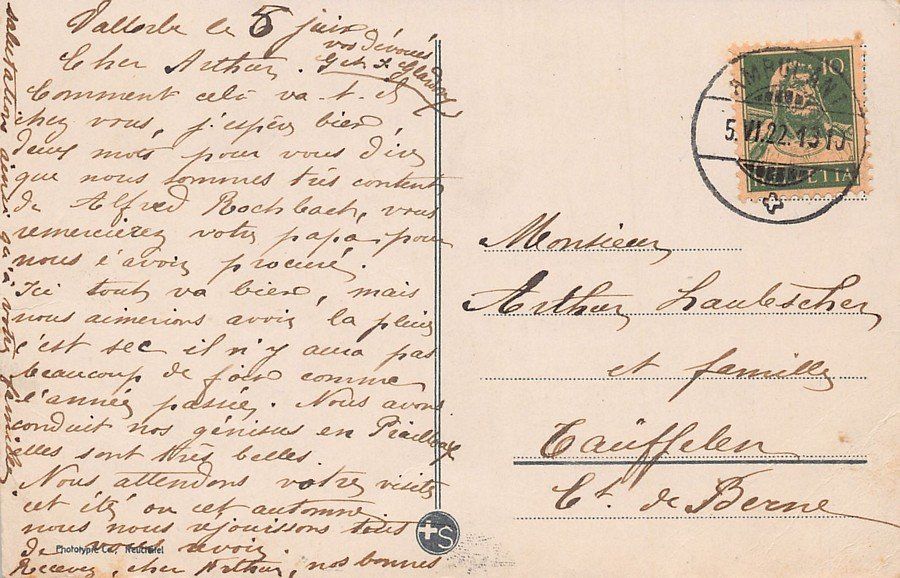 Vallorbe le 5 juin
Cher Arthur.
Comment celà va-t-il
chez vous, j'espère bien
deux mots pour vous dire
que nous sommes très contents
de Alfred Rochbach, vous
remercierez votre papa pour
nous l'avoir procuré.
Ici tout va bien, mais
nous aimerions avoir la pluie
c'est sec il n'y aura pas
beaucoup de foin comme
l'année passée. Nous avons
conduit nos génisses en
elles sont très belles.
Nous attendons votre visite
cet été ou cet automne
nous nous rejouissons tous
de vous avoir.
Recevez, cher Arthur, nos bonnes
salutations ainsi qu'à votre famille.
vos dévoués
Phototypie Co., Neuchâtel
+S
10
HELVETIA
5.VI.22.
Monsieur
Arthur Laubscher
et famille
Täuffelen
Ct. de Berne